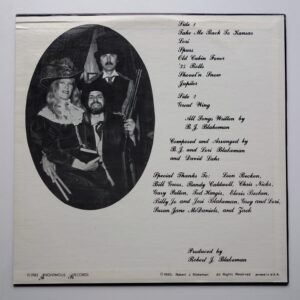 Side 1
Take Me Back To Kansas
Lori
Spurs
Old Cabin Fever
'55 Rolls
Shovel'n Snow
Jupiter
Side 2
Great Wing
All Songs Written by
B. J. Blakeman
Composed and Arranged by
B. J. and Lori Blakeman
and David Lahr
Special Thanks To: Leon Becken,
Bill Goss, Randy Caldwell, Chris Nicks,
Gary Patton, Ted Hangis, Elvris Bechen,
Billy Jo and Lori Blakeman, Greg and Lori,
Susan Jane McDaniels, and Zach
Produced by
Robert J. Blakeman
ANONYMOUS RECORDS
Robert J. Blakeman All Rights Reserved